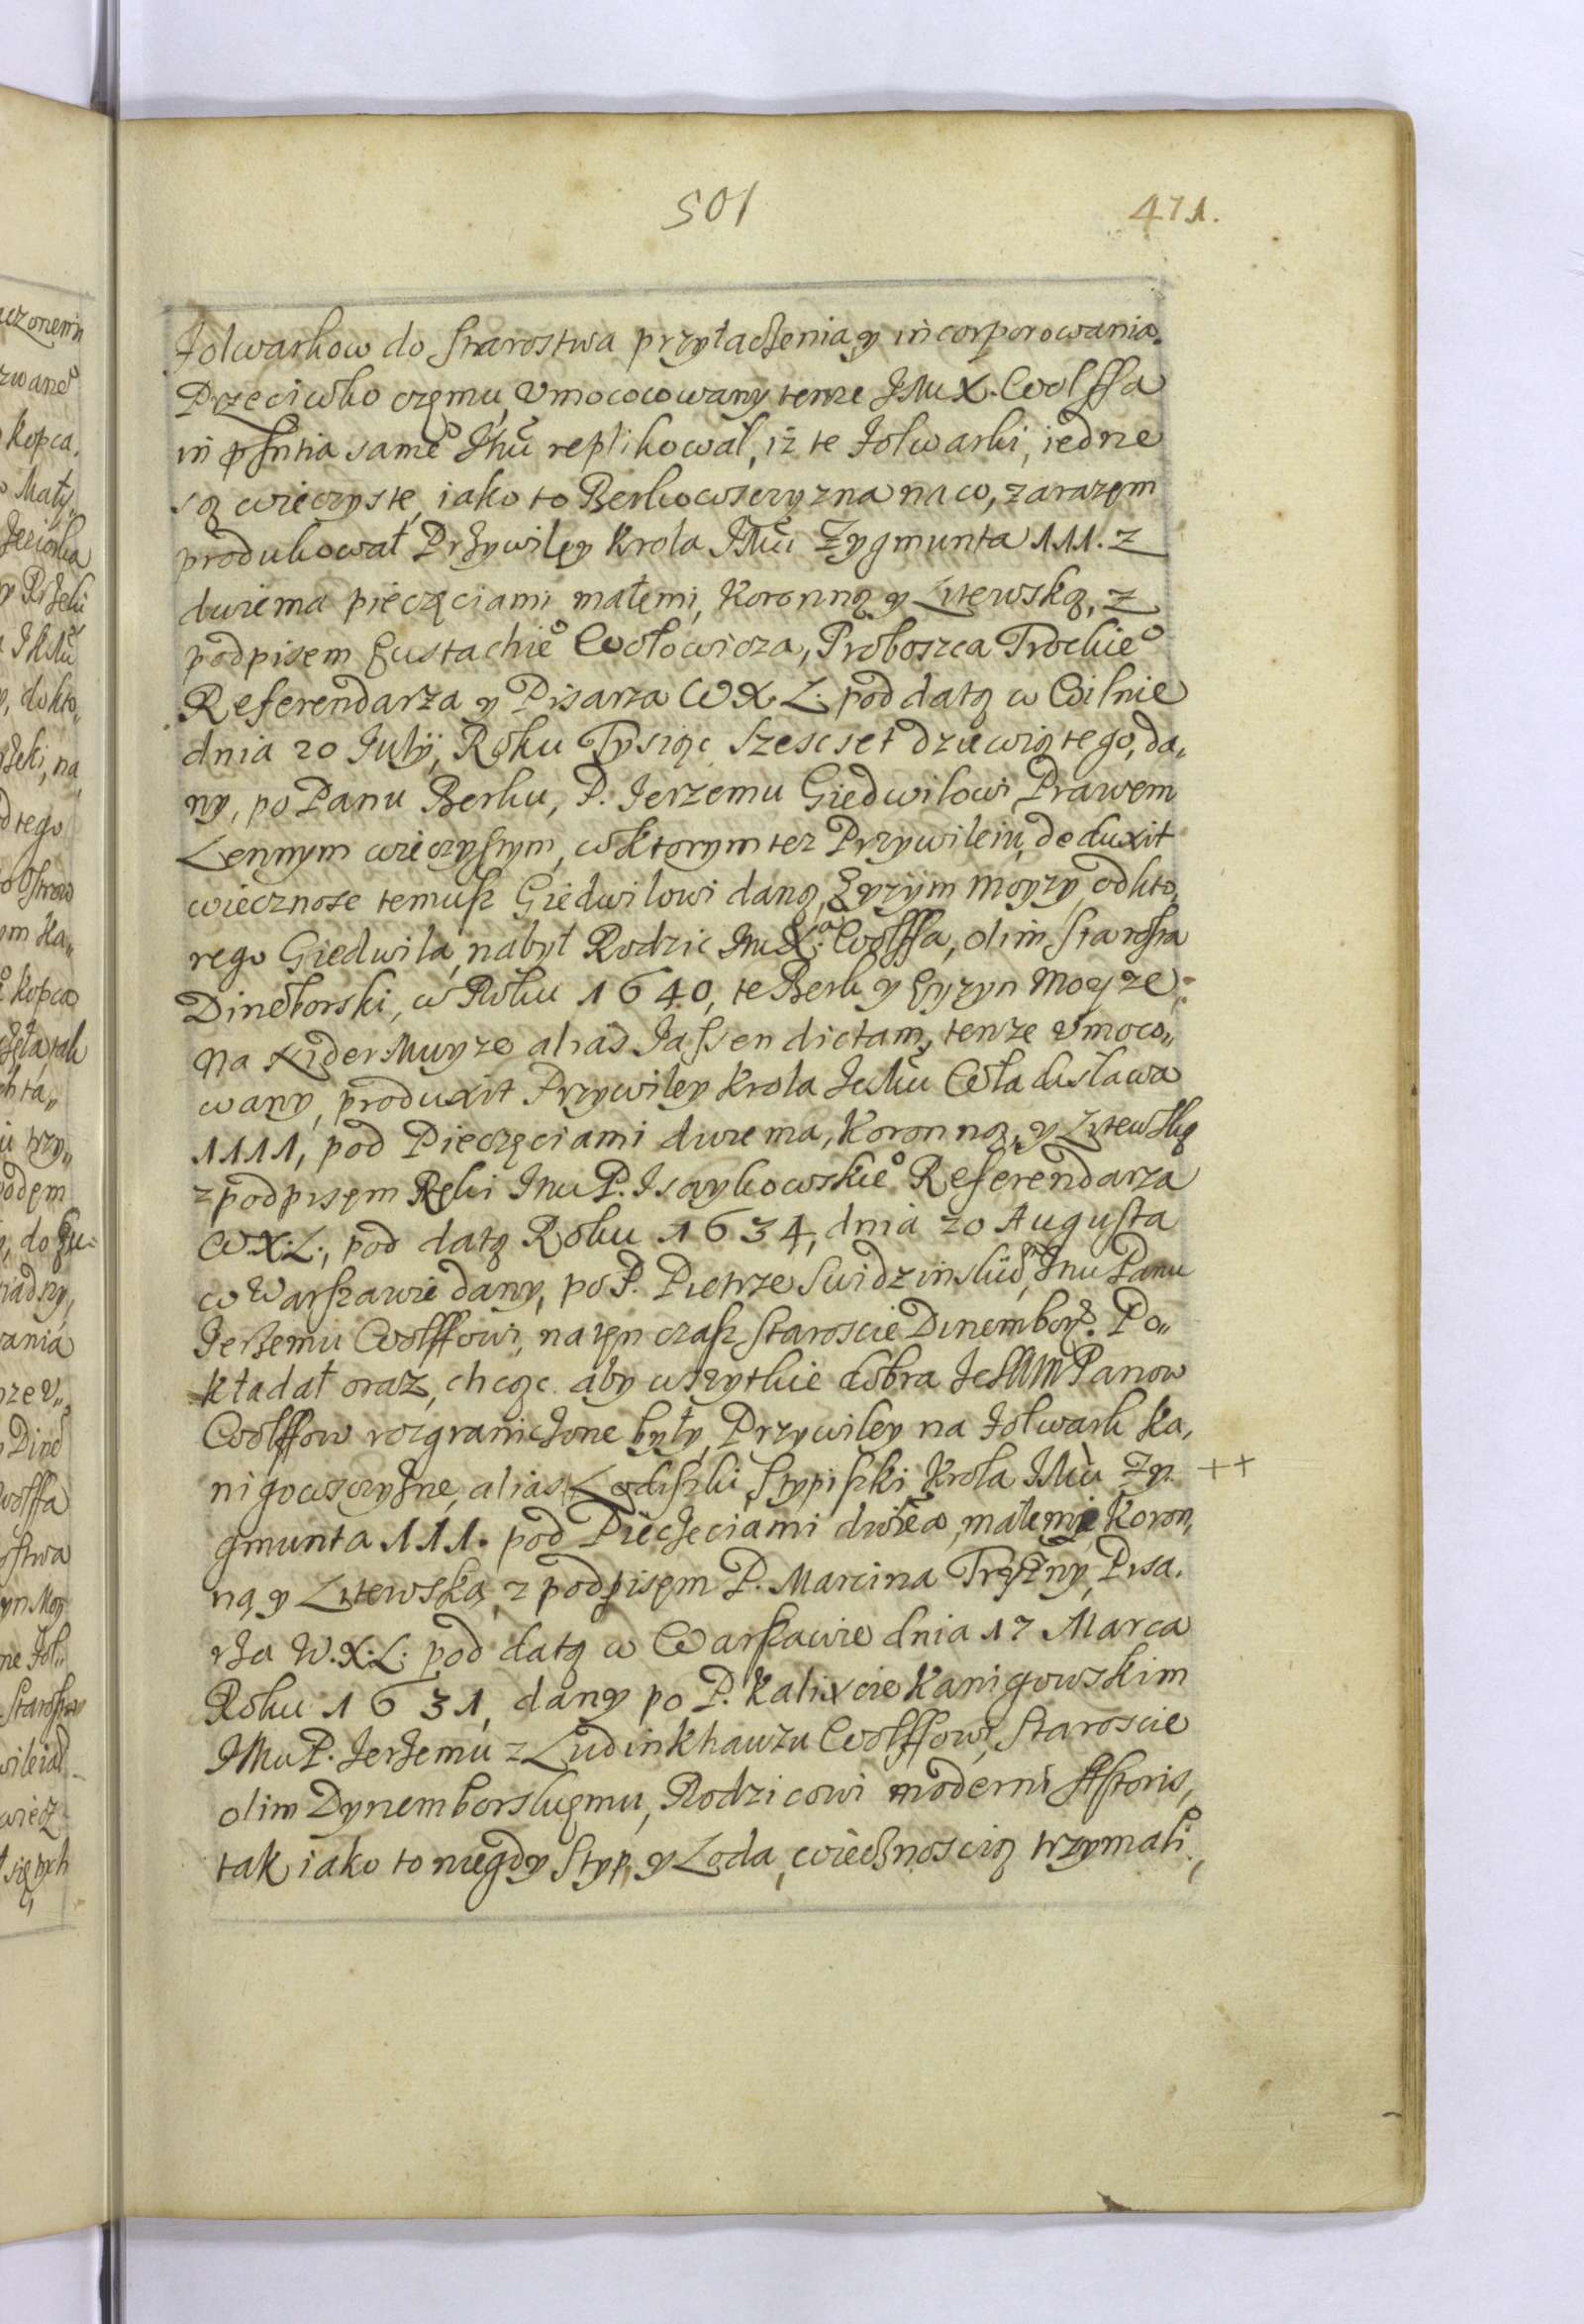 501
471.
Folwarkow do Starostwa przyłaczenia y incorporowania.
Przeciwko częmu, Vmococowany tenze JMu X. Wolffa
in pſntia same° JMu replikował, iż te Folwarki, iedne
są wieczyste, iako to Berkowsczyzna na co, zarazęm
produkował Przywilęy Krola JMu Zygmunta 111. z
dwiema pieczęciami małemi, Koronną y Litewską, z
podpisem Eustachie° Wołowicza, Proboszca Trockie°
Referendarza y Pisarza W X. L. pod datą w Wilnie
dnia 20 Julÿ, Roku Tysiąc szescset dziewiątego, da„
ny, po Panu Berku, P. Jerzemu Giedwiłowi Prawem
Lennym wieczystym, w ktorym tez Przywileiu, deduxit
wiecznosc temusz Giedwilowi daną, Eyzÿm moyzy, od kto,
rego Giedwila, nabył Rodzic JMu X. Wolffa, olim Starosta
Dineborski, w Roku 1640, te Berk y Eyzyn Moyze
Na Xider Muyze alias Jaſſen dictam, tenze Vmoco„
wany, produxit Przywiley Krola JeMu Władusława
1111, pod Pieczęciami dwiema, Koronną, y Litewską
z podpisęm Ręki JMu P. Isaykowskie° Referendarza
W.X:L:, pod datą Roku 1634, dnia 20 Augusta
w Warszawie dany, po P. Pietrze Swidzinskim, JMu Panu
Jerzemu Wolffowi, na ten czasz Staroscie Dinembor. Po„
kładał oraz, chcąc aby wszytkie dobra Panow
Wolffow rozgraniczone były, Przywiley na Folwark Ka,
nigowsczyzne, alias Lodiszki Stypiszki Krola JMu Zy. ++
gmunta 111. pod Pieczeciami dwiea, małemi, Koron,
ną y Litewską, z podpisęm P. Marcina Tryzny, Pisa,
rza W.X:L: pod datą w Warszawie dnia 17 Marca
Roku 1631, dany po P. Kalixcie Kanigowskim
JMu P. Jerzemu z Ludinkhauzu Wolffowi, Staroscie
olim Dynemborskięmu, Rodzicowi moderni Actoris,
tak iako to niegdy Styp, y Loda, wiecznoscią trzymali,